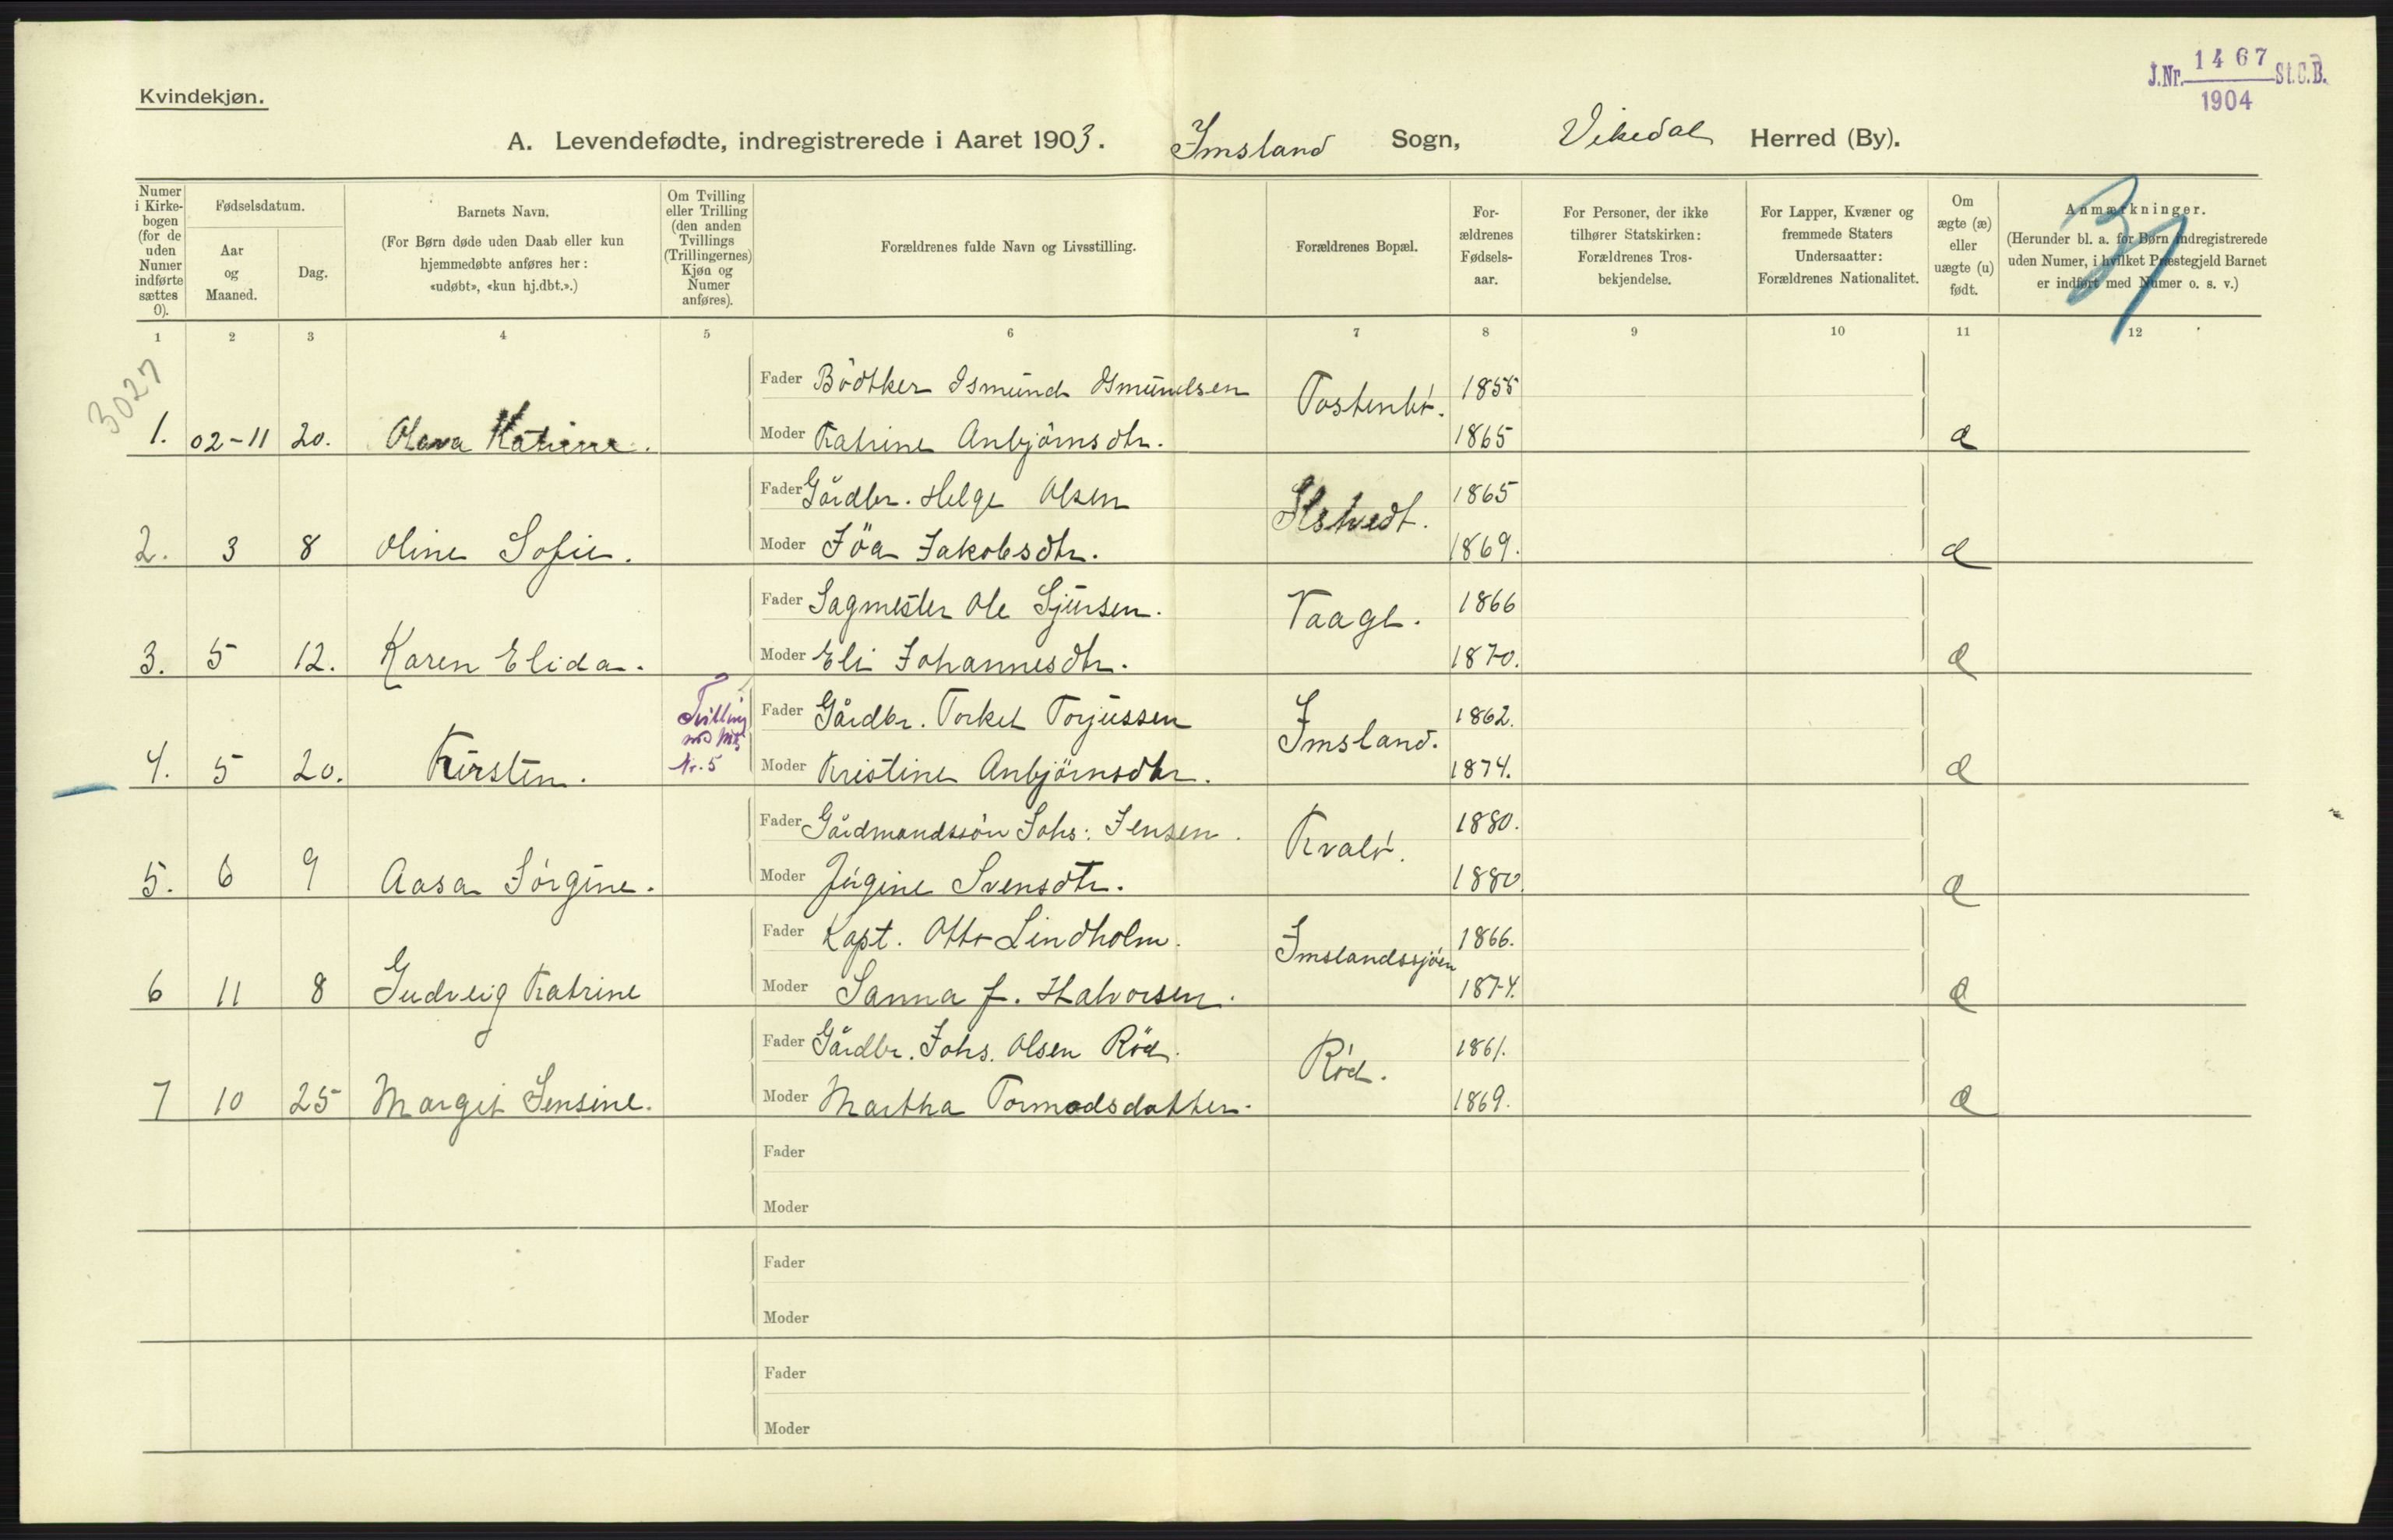 J.Nr. 1467 St.C.B.
1904
Kvindekjøn.
A. Levendefødte, indregistrerede i Aaret 1903. Imsland Sogn, Vikedal Herred (By).
Numer i Kirkebogen (for de uden Numer indførte sættes 0).
Fødselsdatum.
Aar og Maaned.
Dag.
Barnets Navn.
(For Børn døde uden Daab eller kun hjemmedøbte anføres her: «udøbt», «kun hj.dbt.».)
Om Tvilling eller Trilling (den anden Tvillings (Trillingernes) Kjøn og Numer anføres).
Forældrenes fulde Navn og Livsstilling.
Forældrenes Bopæl.
Forældrenes Fødselsaar.
For Personer, der ikke tilhører Statskirken: Forældrenes Trosbekjendelse.
For Lapper, Kvæner og fremmede Staters Undersaatter: Forældrenes Nationalitet.
Om ægte (æ) eller uægte (u) født.
Anmærkninger.
(Herunder bl. a. for Børn indregistrerede uden Numer, i hvilket Præstegjeld Barnet er indført med Numer o. s. v.)
1 2 3 4 5 6 7 8 9 10 11 12
3027
Fader Bödtker Ismund Ismundsen 1855
1. 02-11 20. Olava Katrine. Moder Katrine Anbjörnsdtr. 1865 æ
Fader Gårdbr. Helge Olsen 1865
2. 3 8 Oline Sofie. Moder Jöa Jakobsdtr. 1869. æ
Fader Sagmester Ole Sjursen. Vaage. 1866
3. 5 12. Karen Elida. Moder Eli Johannesdtr. 1870. æ
Fader Gårdbr. Torkel Torjussen Imsland. 1862.
4. 5 20. Kirsten. Tvilling med Mk Nr. 5 Moder Kristine Anbjörnsdtr. 1874. æ
Fader Gårdmandssön Johs: Jensen. Kvalö. 1880.
5. 6 9 Aasa Jörgine. Moder Jörgine Svensdtr. 1880. æ
Fader Kapt. Otto Lindholm. Imslandssjöen 1866.
6 11 8 Gudveig Katrine Moder Sanna f. Halvorsen. 1874. æ
Fader Gårdbr. Johs. Olsen Röd. Röd. 1861.
7 10 25 Margit Jensine. Moder Martha Tormodsdatter. 1869. æ
Fader
Moder
Fader
Moder
Fader
Moder